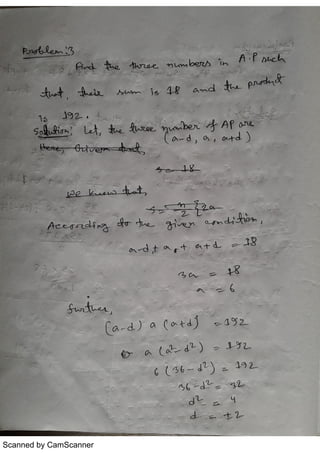 Problem:3
Find the three numbers in A.P such
that, their sum is 18 and the product
is 192.
Solution: Let, the three number of AP are
(a-d, a, a+d)
Here, Given that,
S = 18
We know that,
S = n/2 {2a
According to the given condition,
a-d + a + a+d = 18
3a = 18
a = 6
further,
(a-d) a (a+d) = 192
a (a²-d²) = 192
6 (36-d²) = 192
36-d² = 32
d² = 4
d = ±2
Scanned by CamScanner